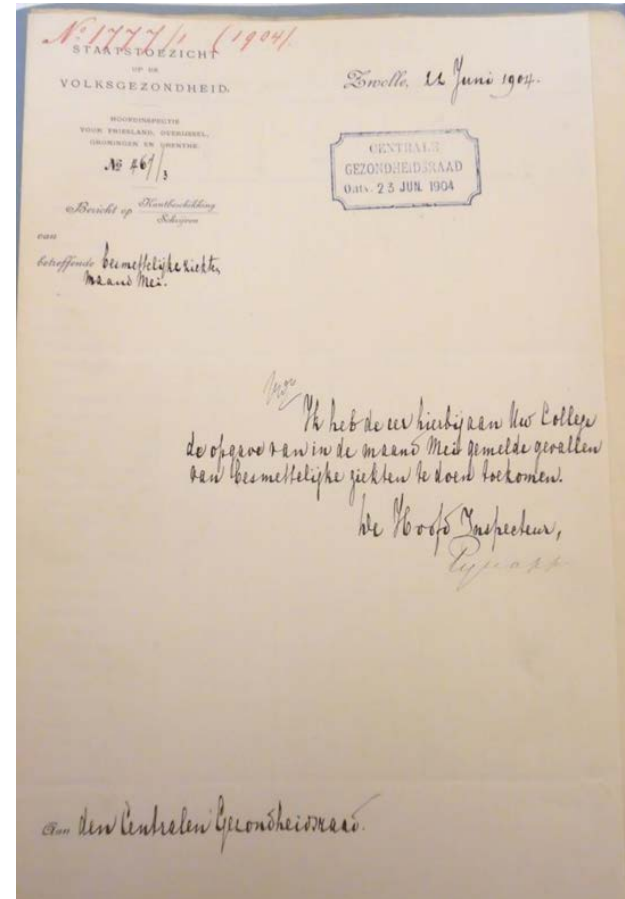 No 1777/1 (1904).
STAATSTOEZICHT
OP DE
VOLKSGEZONDHEID.
HOOFDINSPECTIE
VOOR FRIESLAND, OVERIJSSEL,
GRONINGEN EN DRENTHE.
No 461/3
Bericht op Kantbeschikking
Schrijven
van
betreffende besmettelijke ziekten
maand Mei.
Zwolle, 22 Juni 1904.
CENTRALE
GEZONDHEIDSRAAD
Ontv. 23 JUN. 1904
Ik heb de eer hierbij aan Uw College
de opgave van in de maand Mei gemelde gevallen
van besmettelijke ziekten te doen toekomen.
De Hoofd Inspecteur,
Aan den Centralen Gezondheidsraad.